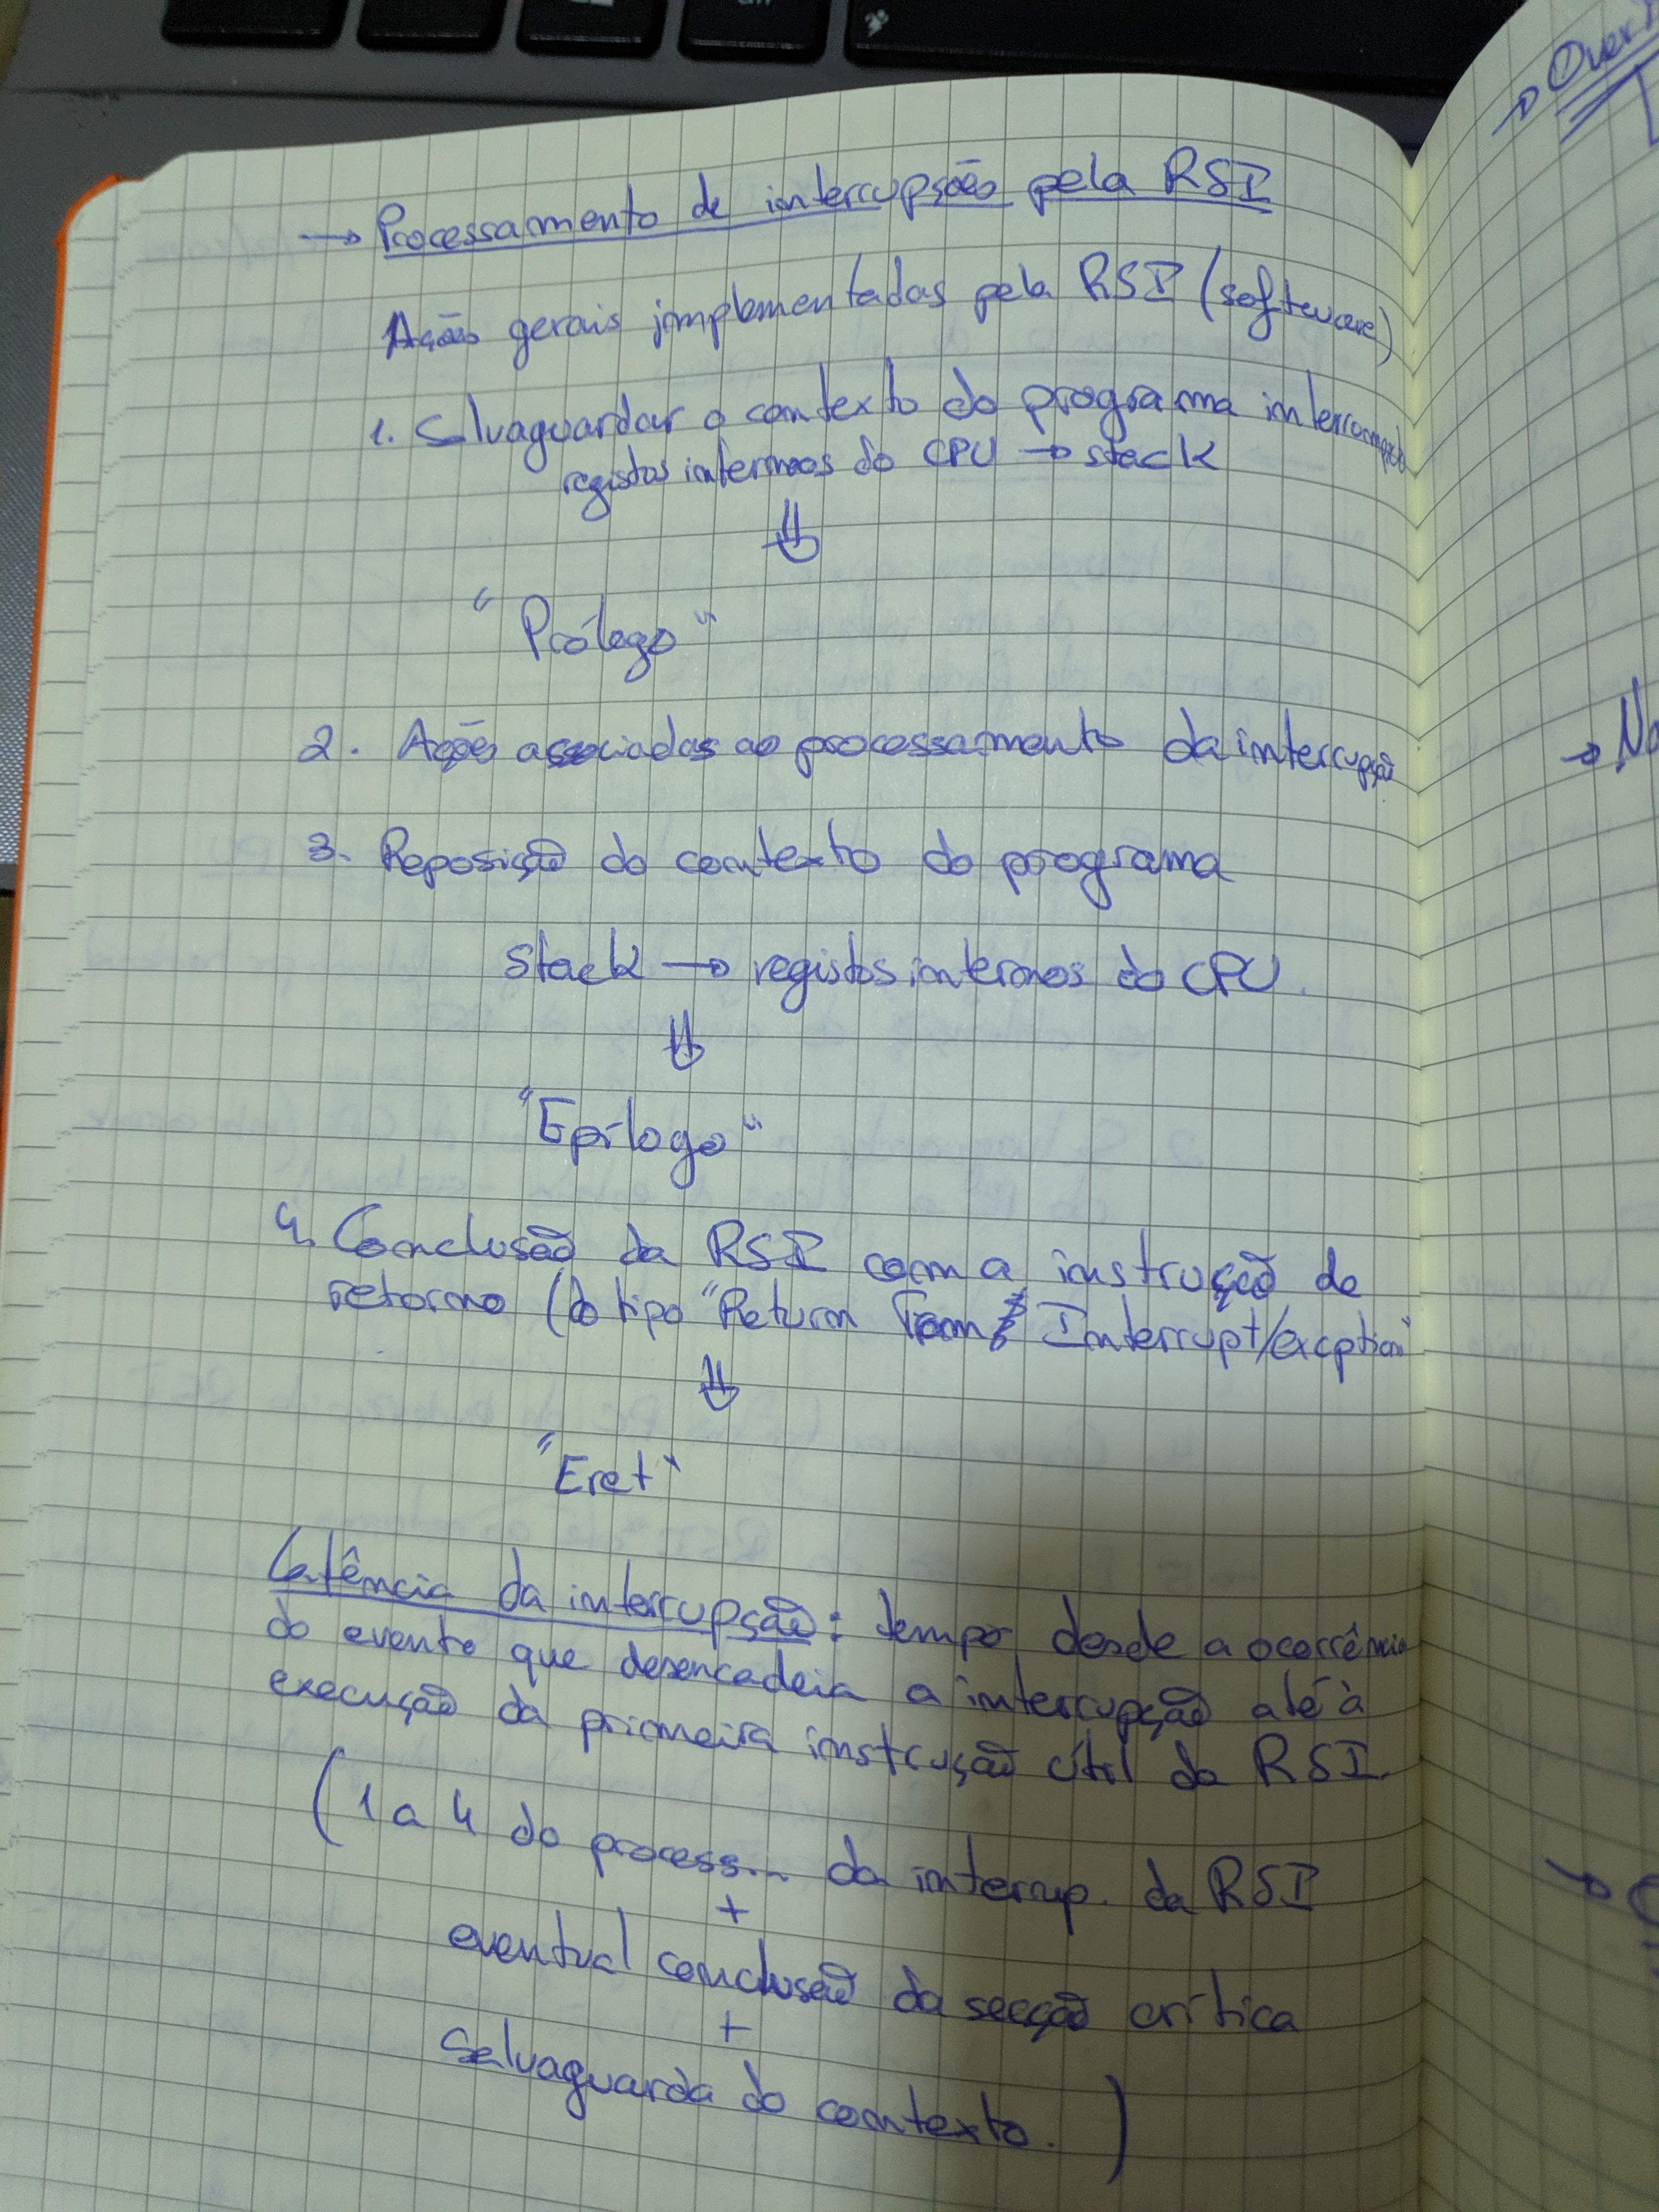 → Processamento de interrupções pela RSI
Ações gerais implementadas pela RSI (software)
1. Salvaguardar o contexto do programa interrompido
registos internos do CPU → stack
⇓
"Prólogo"
2. Ações associadas ao processamento da interrupção
3. Reposição do contexto do programa
stack → registos internos do CPU.
⇓
"Epílogo"
4. Conclusão da RSI com a instrução de
retorno (do tipo "Return From Interrupt/excption"
⇓
"Eret"
Latência da interrupção: tempo desde a ocorrência
do evento que desencadeia a interrupção até à
execução da primeira instrução útil da RSI.
(1 a 4 do process... da interrup. da RSI
+
eventual conclusão da secção crítica
+
Salvaguarda do contexto. )
→ Over
→ No
→